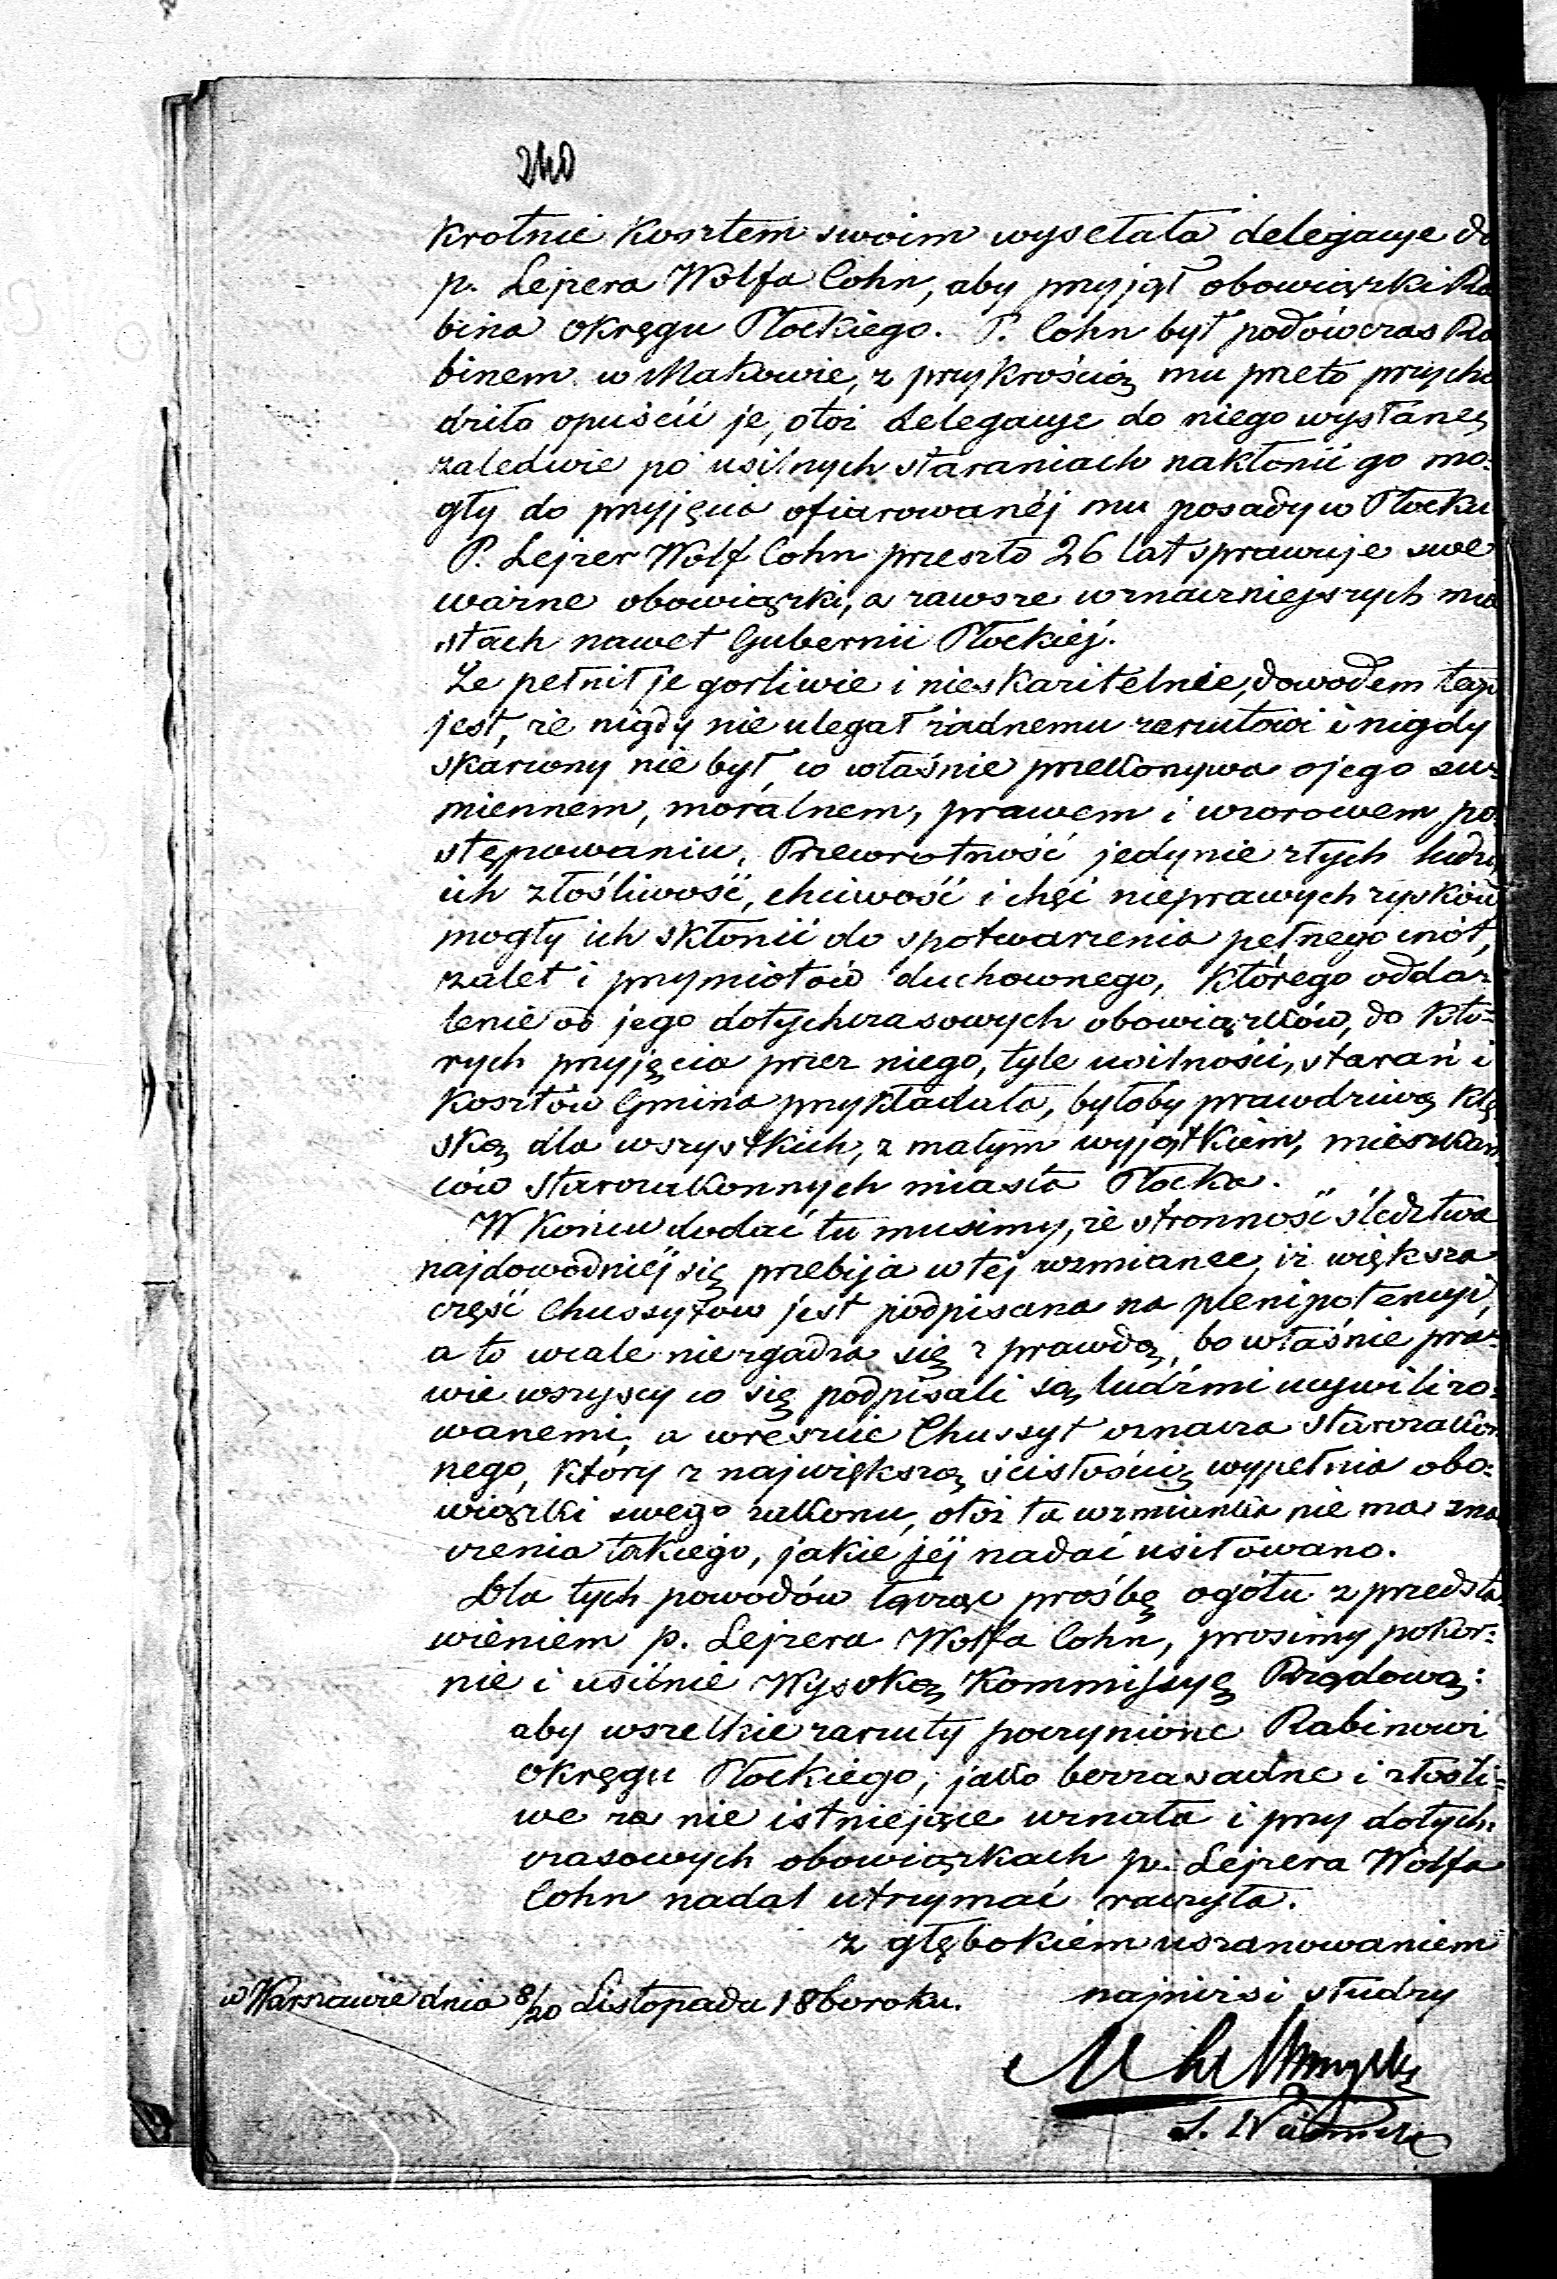 240
krotnie kosztem swoim wysełała delegacye do
p. Lejzera Wolfa Cohn, aby przyjął obowiązki Ra
bina Okręgu Płockiego. P. Cohn był podówczas Ra
binem w Makowie, z przykrością mu przeto przycho
dziło opuścić je, otóż delegacye do niego wysłane,
zaledwie po usilnych staraniach nakłonić go mo=
gły do przyjęcia ofiarowanéj mu posady w Płocku
P. Lejzer Wolf Cohn przeszło 26 lat sprawuje swe
ważne obowiązki, a zawsze w znaczniejszych mia
stach nawet Gubernii Płockiéj.
Że pełnił je gorliwie i nieskazitelnie, dowodem tego
jest, że nigdy nie ulegał żadnemu zarzutowi i nigdy
skarżony nie był, co właśnie przekonywa o jego su=
miennem, moralnem, prawem i wzorowem po
stępowaniu. Przewrotność jedynie złych ludzi,
ich złośliwość, chciwość i chęć nieprawych zysków
mogły ich skłonić do spotwarzenia pełnego cnót,
zalet i przymiotów duchownego, którego odda=
lenie od jego dotychczasowych obowiązków, do któ=
rych przyjęcia przez niego, tyle usilności, starań i
kosztów Gmina przykładała, byłoby prawdziwą klę
ską dla wszystkich, z małym wyjątkiem, mieszkań
ców starozakonnych miasta Płocka.
W końcu dodać tu musimy, że stronność śledztwa
najdowodniéj się przebija w téj wzmiance, iż większa
część Chussytów jest podpisana na plenipotencyi,
a to wcale niezgadza się z prawdą, bo właśnie pra=
wie wszyscy co się podpisali są ludźmi ucywilizo=
wanemi, a wreszcie Chussyt oznacza starozakon
nego, który z największą ścisłością wypełnia obo=
wiązki swego zakonu, otóż ta wzmianka nie ma zna
czenia takiego, jakie jéj nadać usiłowano.
Dla tych powodów łącząc prośbę ogółu z przedsta=
wieniem p. Lejzera Wolfa Cohn, prosimy pokor=
nie i usilnie Wysoką Kommissyę Rządową:
aby wszelkie zarzuty poczynione Rabinowi
Okręgu Płockiego, jako bezzasadne i złośli=
we za nie istniejące uznała i przy dotych=
czasowych obowiązkach p. Lejzera Wolfa
Cohn nadal utrzymać raczyła.
z głębokiém uszanowaniem
w Warszawie dnia 8/20 Listopada 186 roku. najniżsi słudzy